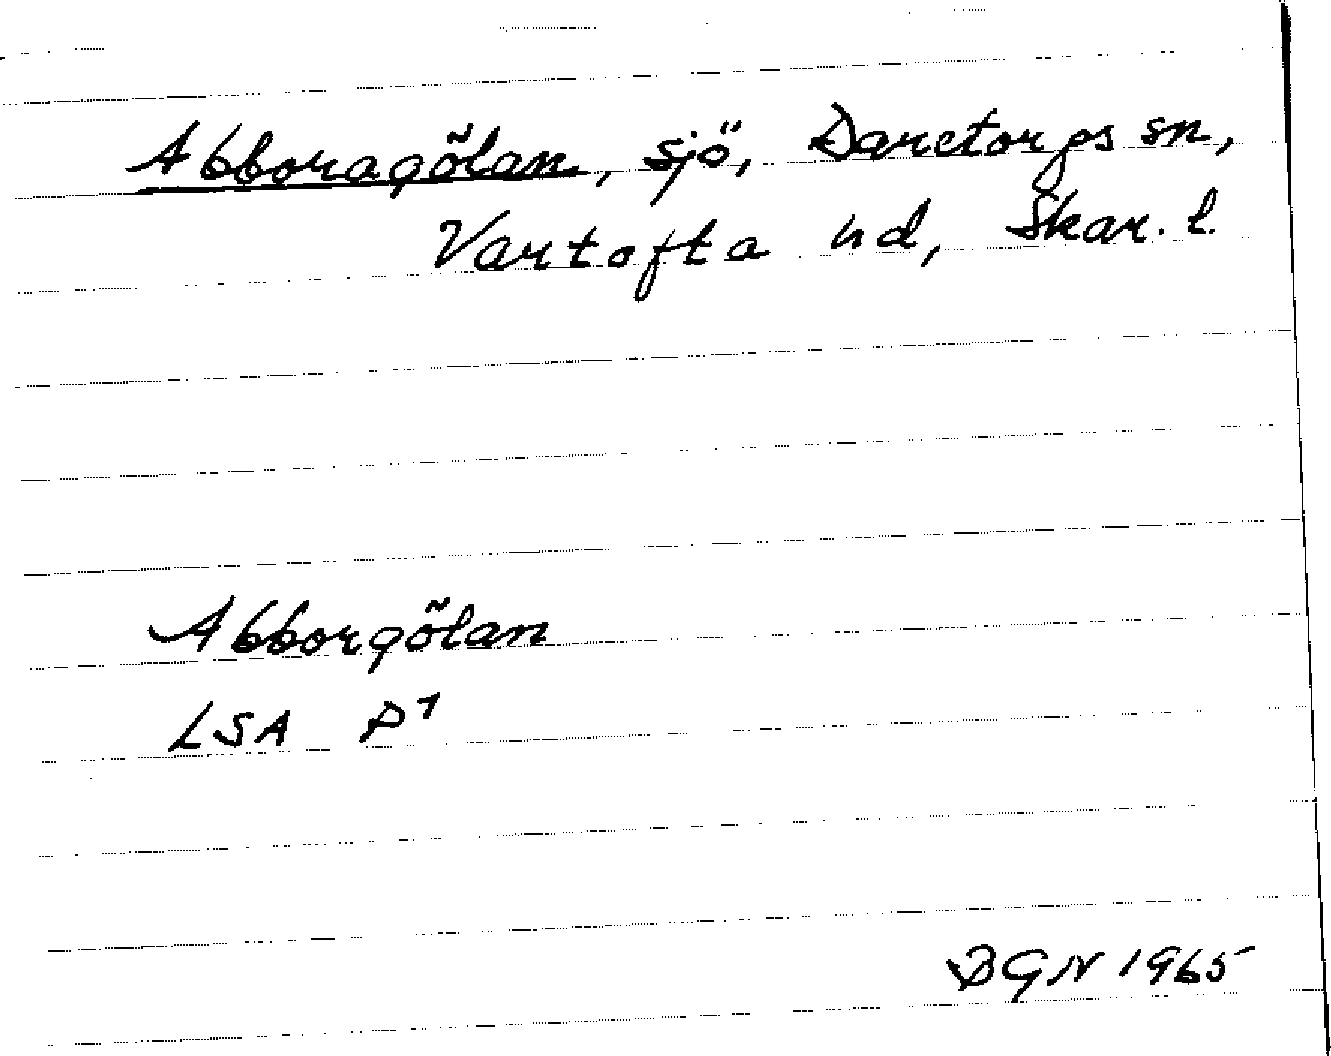 Abboragölan, sjö, Daretorps sn,
Vartofta hd, Skar. l.
Abborgölan
LSA P1
BGN 1965